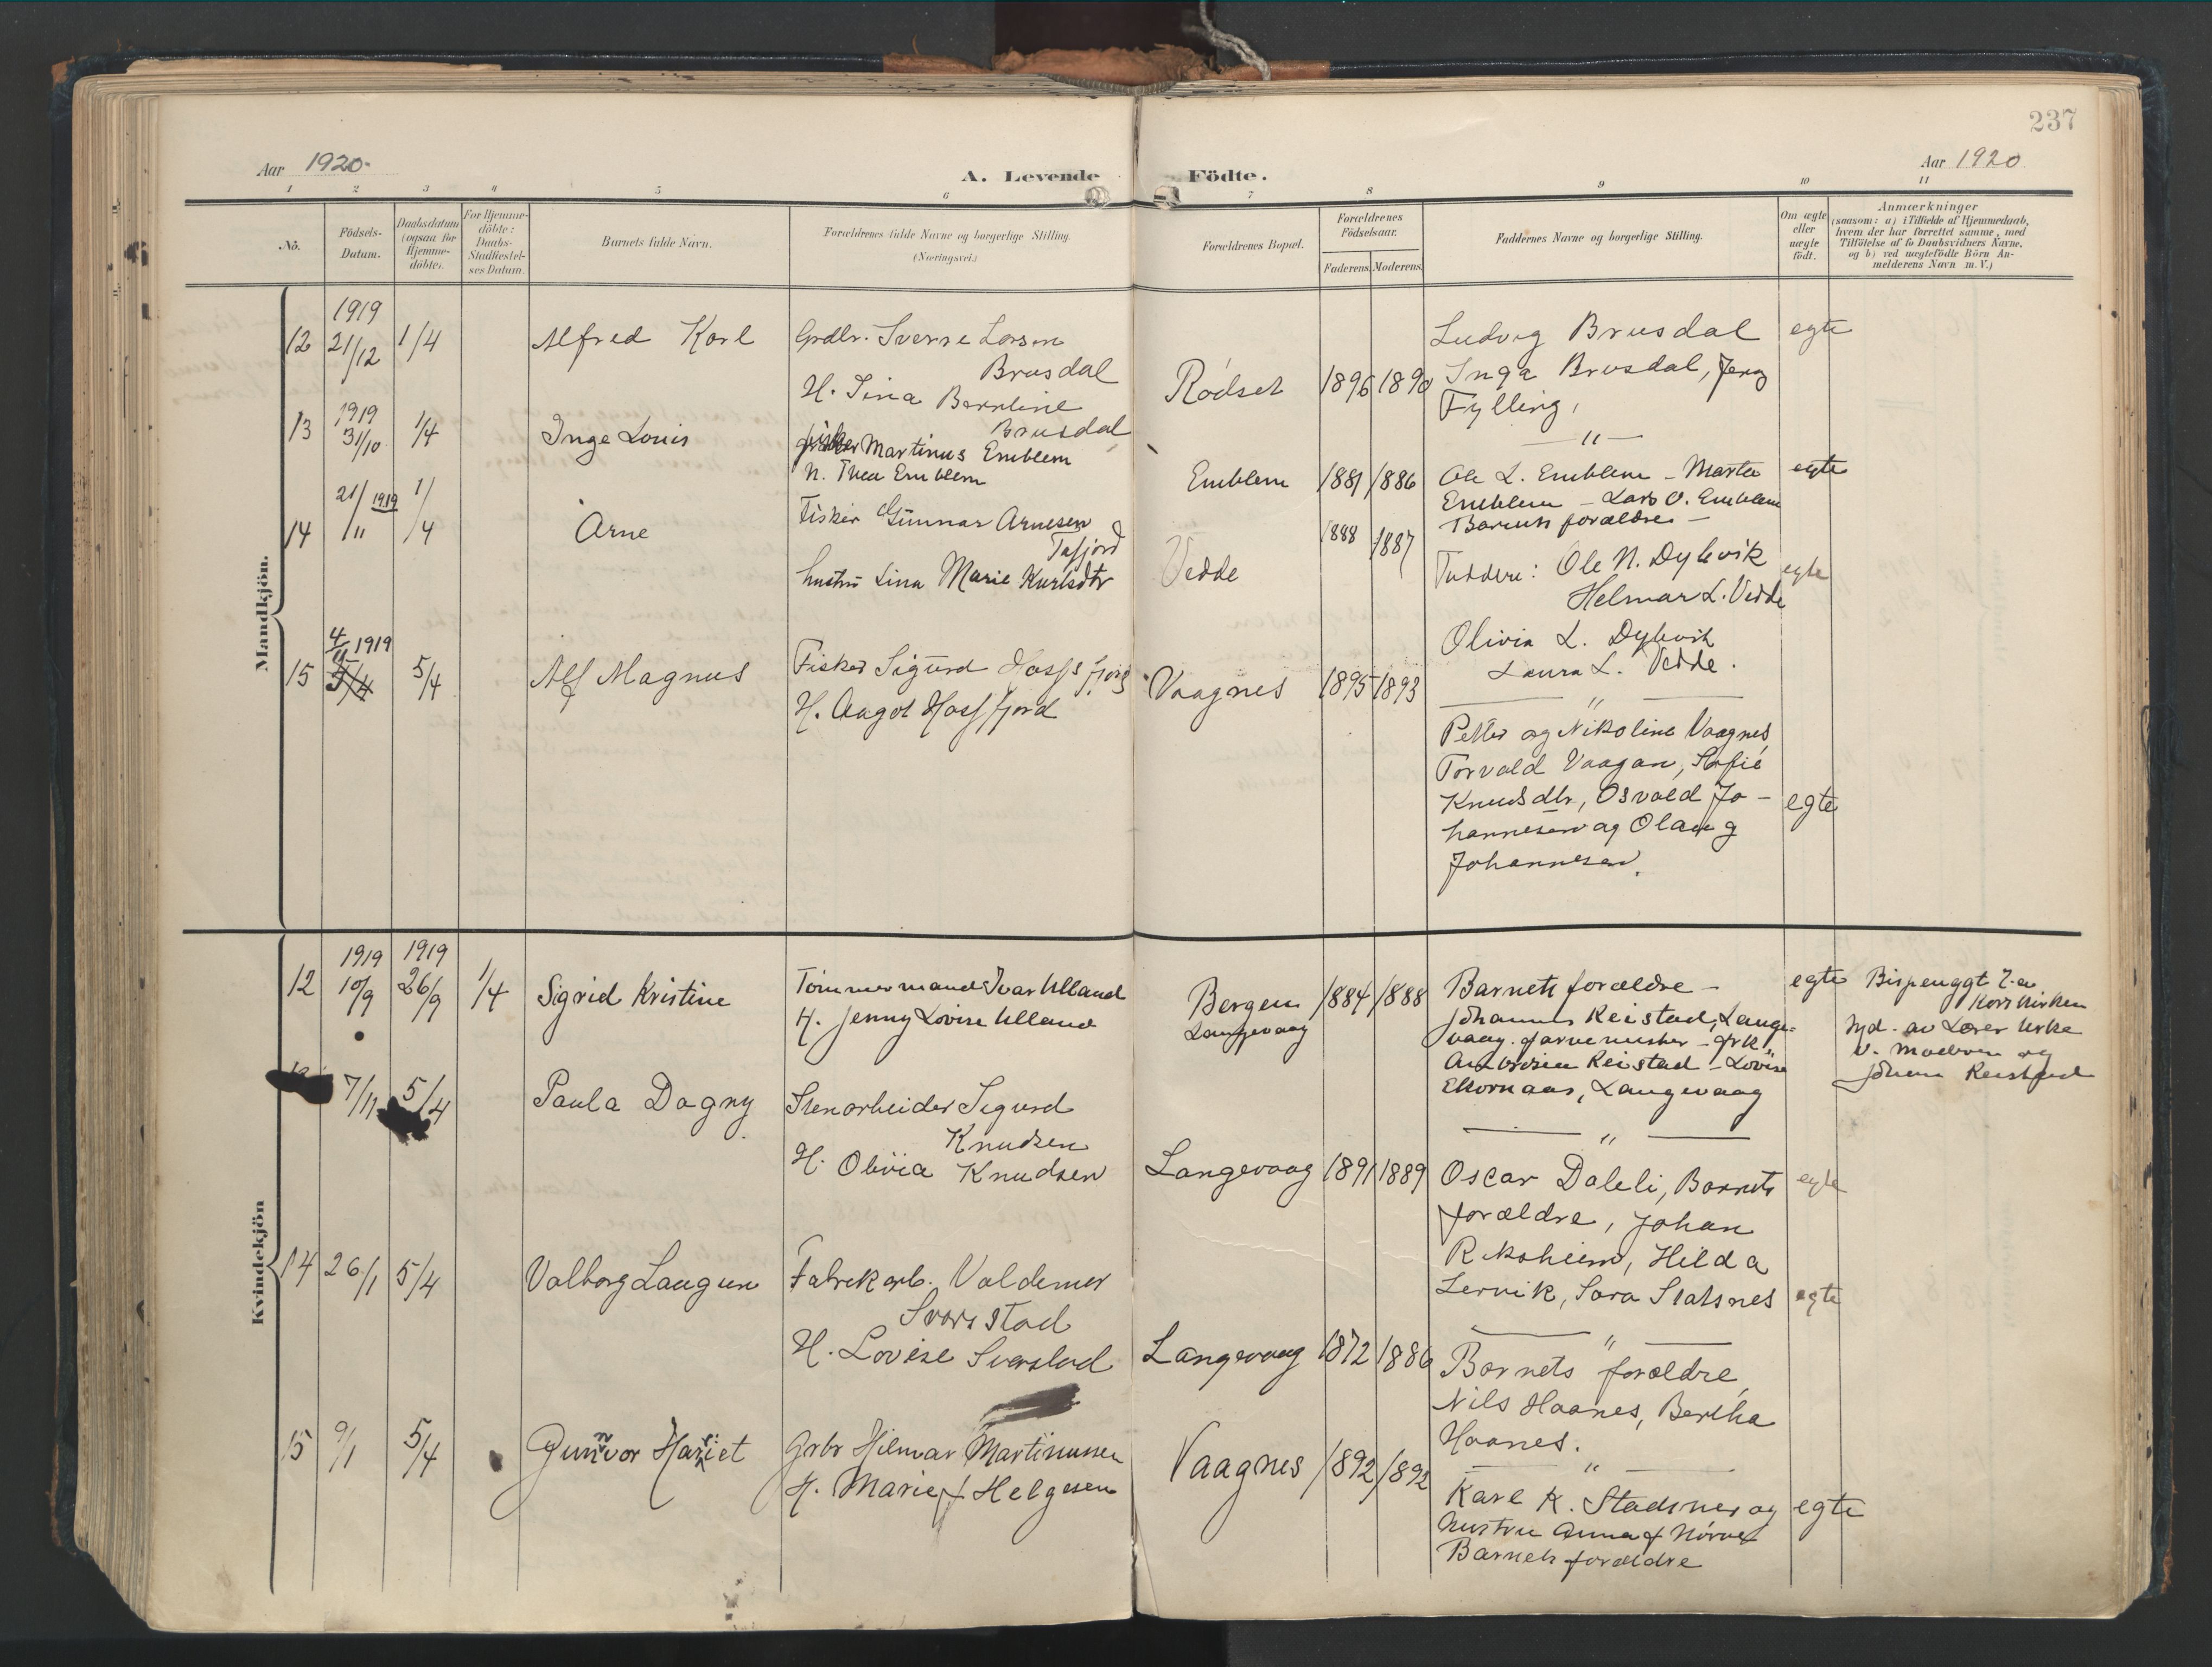 237
Aar 1920.
A. Levende Födte.
Aar 1920
1 2 3 4 5 6 7 8 9 10 11
No.
Födsels-
Datum.
Daabsdatum
(ogsaa for
Hjemme-
döbte).
For Hjemme-
döbte:
Daabs-
Stadfæstel-
ses Datum.
Barnets fulde Navn.
Forældrenes fulde Navne og borgerlige Stilling.
(Næringsvei.)
Forældrenes Bopæl.
Forældrenes
Födselsaar.
Faderens. Moderens.
Faddernes Navne og borgerlige Stilling.
Om ægte
eller
uægte
födt.
Anmærkninger
(saasom: a) i Tilfælde af Hjemmedaab,
hvem der har forrettet samme, med
Tilföielse af to Daabsvidners Navne,
og b) ved uægtefödte Börn An-
melderens Navn m. V.)
Mandkjön.
12
1919
21/12
1/4
Alfred Karl
Grdbr. Sverre Larsen
Brusdal
H. Sina Berntine
Brusdal
Rödset
1896 1890
Ludvig Brusdal
Inga Brusdal, Jens
Fylling,
— " —
egte
13
1919
31/10
1/4
Inge Louis
fisker Martinus Emblem
H. Thea Emblem
Emblem
1881 1886
Ole L. Emblem - Marta
Emblem - Lars O. Emblem
Barnets forældre -
egte
14
21/11 1919
1/4
Arne
Fisker Gunnar Arnesen
Tafjord
hustru Lina Marie Karlsdtr
Vedde
1888 1887
Faddere: Ole N. Dybvik
Helmar L. Vedde
Olivia L. Dybvik
Laura L. Vedde.
— " —
egte
15
4/11 1919
5/4
5/4
Alf Magnus
Fisker Sigurd Hossfjord
H. Aagot Hossfjord
Vaagnes
1895 1893
Petter og Nikoline Vaagnes,
Torvald Vaagan, Sofie
Knudsdtr, Osvald Jo-
hannesen og Olaug
Johannesen.
egte
Kvindekjön
12
1919
10/9
1919
26/9
1/4
Sigrid Kristine
Tömmermand Ivar Ulland
H. Jenny Lovise Ulland
Bergen
Langevaag
1884 1888
Barnets forældre -
Johannes Reistad, Lange-
vaag. farvemester - frk.
Reistad - Lovise
Ekornaas, Langevaag
— " —
egte
Korskirken
av Lærer Urke
v. moderen og
Johan Reistad
7/11
5/4
Paula Dagny
Stenarbeider Sigurd
Knudsen
H. Olivia Knudsen
Langevaag
1891 1889
Oscar Daleli, Barnets
forældre, Johan
Riksheim, Hilda
Lervik, Sara Statsnes
— " —
egte
14
26/1
5/4
Valborg Laugun
Fabrikarb. Valdemar
Svorstad
H. Lovise Sverstad
Langevaag
1872 1886
Barnets forældre,
Nils Haanes, Bertha
Haanes.
— " —
egte
15
9/1
5/4
Gunnvor Hariet
Grbr Hilmar Martinussen
H. Marie f Helgesen
Vaagnes
1892 1892
Karl K. Stadsnes og
hustru Anna f Nörve
Barnets forældre
egte